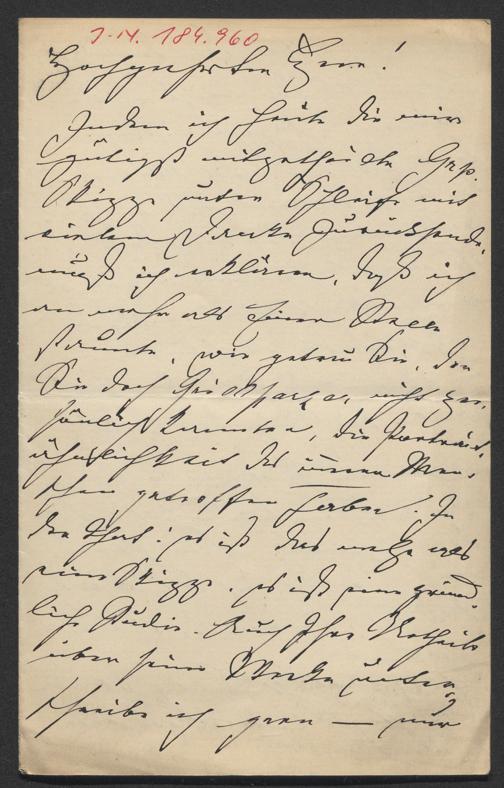 I.N. 184.960
Hochgeehrter Herr!
Indem ich heute die mir
gütigst mitgetheilte Grp.
Skizze unter Schleife mit
vielem Danke zurücksende,
muß ich erklären, daß ich
an mehr als einer Stelle
staunte, wie getreu Sie, der
Sie doch Grillparzer nicht per-
sönlich kannten, die Porträt-
ähnlichkeit des inneren Men-
schen getroffen haben. In
der That: es ist das mehr als
eine Skizze. es ist eine gründ-
liche Studie. Auch Ihre Urtheile
über seine Werke unter-
schreibe ich gern — nur